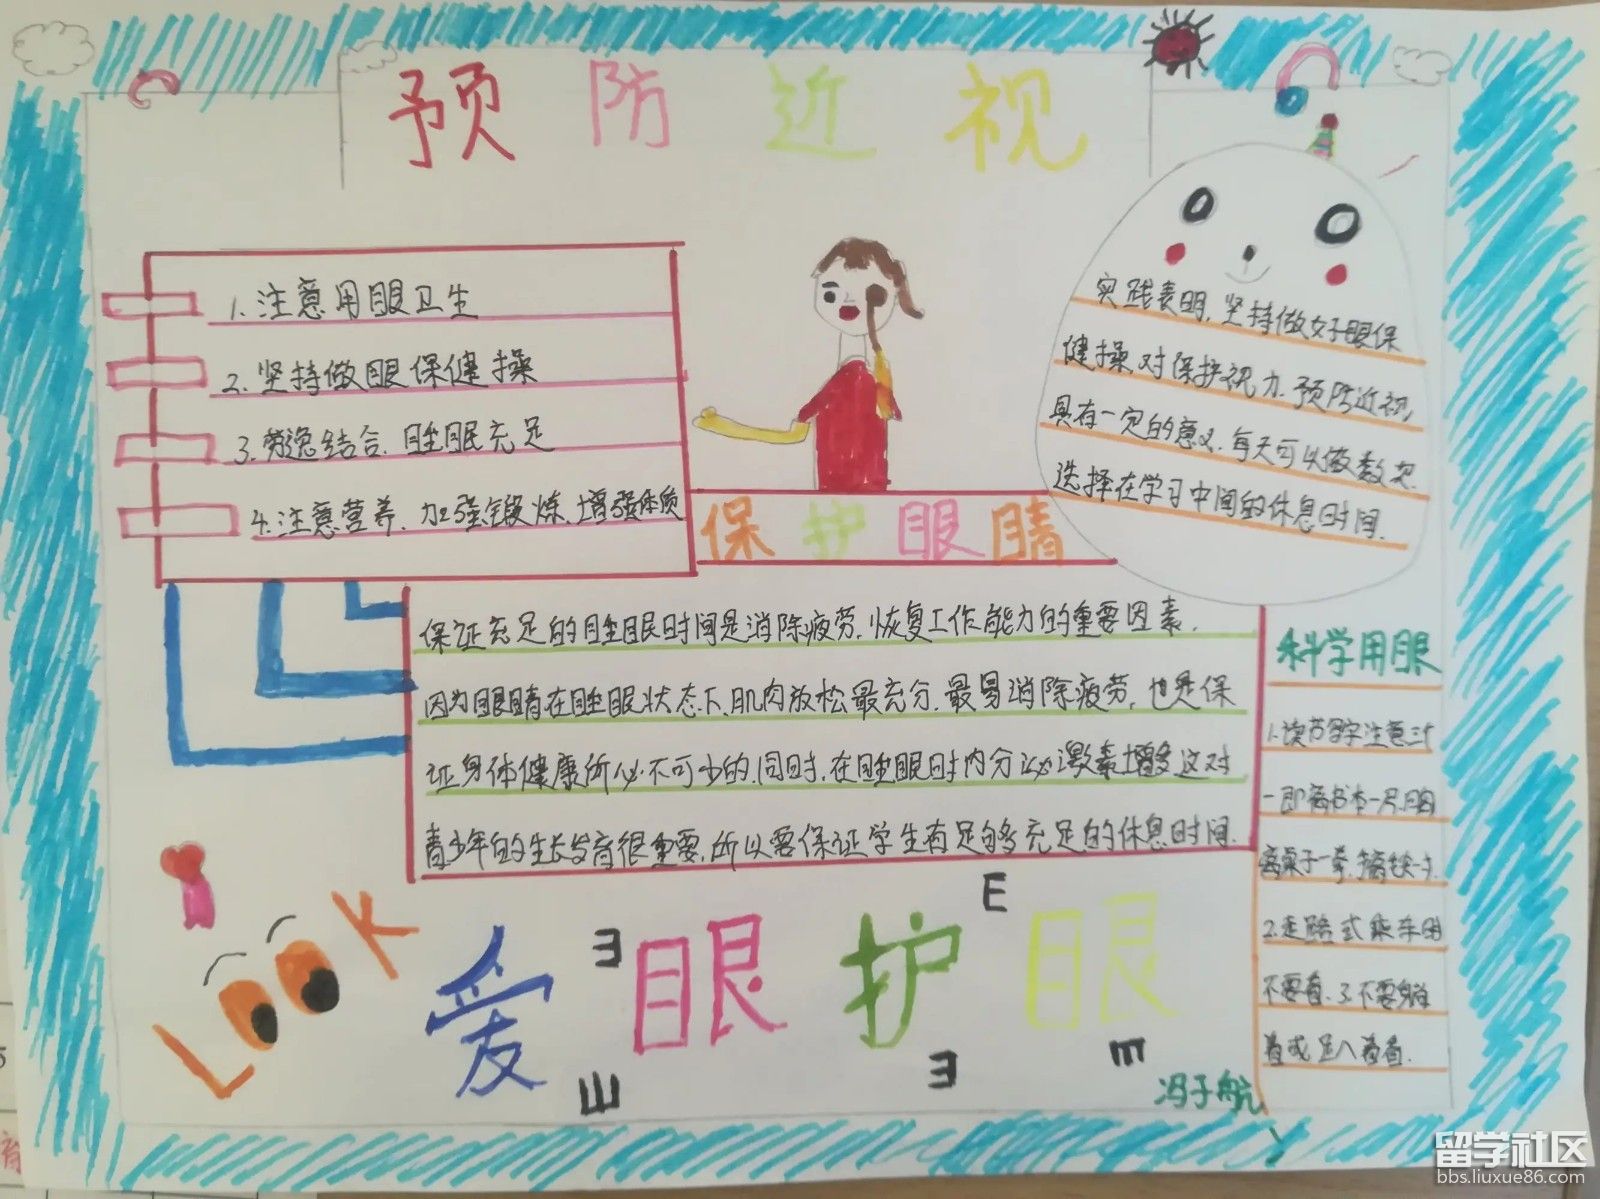 预防近视
1.注意用眼卫生
2.坚持做眼保健操
3.劳逸结合.睡眠充足
4.注意营养.加强锻炼.增强体质
保护眼睛
实践表明,坚持做好眼保
健操对保护视力.预防近视
具有一定的意义.每天可以做数次.
选择在学习中间的休息时间.
保证充足的睡眠时间是消除疲劳.恢复工作能力的重要因素.
因为眼睛在睡眠状态下.肌肉放松最充分.最易消除疲劳,也是保
证身体健康所必不可少的.同时,在睡眠时内分泌激素增多这对
青少年的生长发育很重要.所以要保证学生有足够充足的休息时间.
科学用眼
1.读书写字注意三个
一即离书本一尺.胸
离桌子一拳.
2.走路 乘车时
不要看.3.不要躺
着或
LOOK
爱眼护眼
E
E
E
E
E
冯子航
留学社区
bbs.liuxue86.com